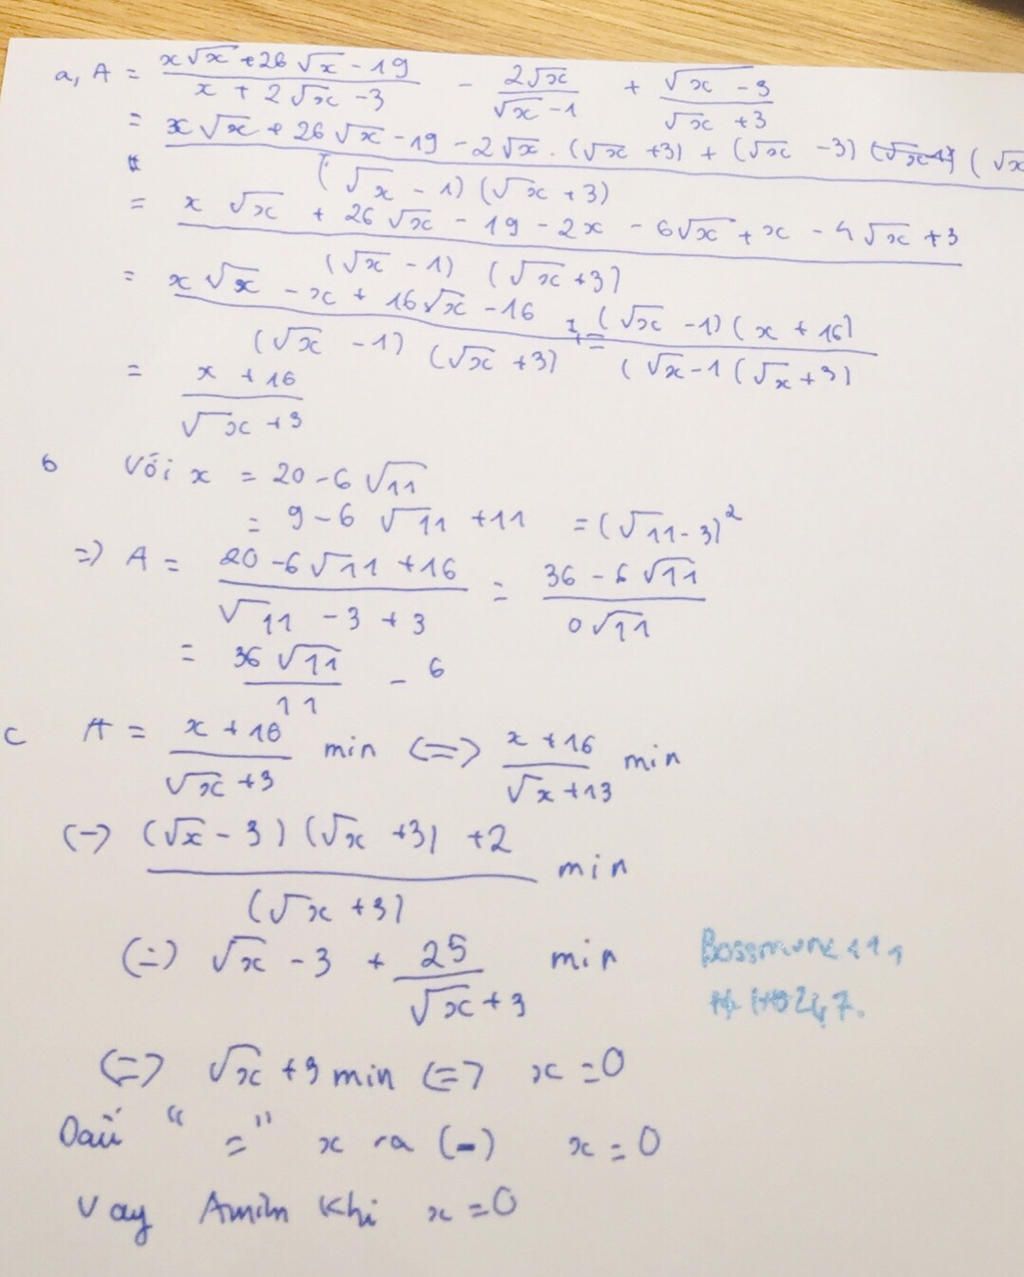 a, A = \frac{x\sqrt{x} + 26\sqrt{x} - 19}{x + 2\sqrt{x} - 3} - \frac{2\sqrt{x}}{\sqrt{x} - 1} + \frac{\sqrt{x} - 3}{\sqrt{x} + 3}
= \frac{x\sqrt{x} + 26\sqrt{x} - 19 - 2\sqrt{x} . (\sqrt{x} + 3) + (\sqrt{x} - 3) (\sqrt{x}}{(\sqrt{x} - 1)(\sqrt{x} + 3)}
= \frac{x\sqrt{x} + 26\sqrt{x} - 19 - 2x - 6\sqrt{x} + x - 4\sqrt{x} + 3}{(\sqrt{x} - 1)(\sqrt{x} + 3)}
= \frac{x\sqrt{x} - x + 16\sqrt{x} - 16}{(\sqrt{x} - 1)(\sqrt{x} + 3)} = \frac{(\sqrt{x} - 1)(x + 16)}{(\sqrt{x} - 1(\sqrt{x} + 3)}
= \frac{x + 16}{\sqrt{x} + 3}
b Với x = 20 - 6\sqrt{11}
= 9 - 6\sqrt{11} + 11 = (\sqrt{11} - 3)^2
=) A = \frac{20 - 6\sqrt{11} + 16}{\sqrt{11} - 3 + 3} = \frac{36 - 6\sqrt{11}}{0\sqrt{11}}
= \frac{36\sqrt{11}}{11} - 6
c A = \frac{x + 16}{\sqrt{x} + 3} min (=) \frac{x + 16}{\sqrt{x} + 13} min
(-) \frac{(\sqrt{x} - 3)(\sqrt{x} + 3) + 2}{(\sqrt{x} + 3)} min
(=) \sqrt{x} - 3 + \frac{25}{\sqrt{x} + 3} min
(=) \sqrt{x} + 3 min (=) x = 0
Dấu " = " x ra (-) x = 0
Vay Amin khi x = 0